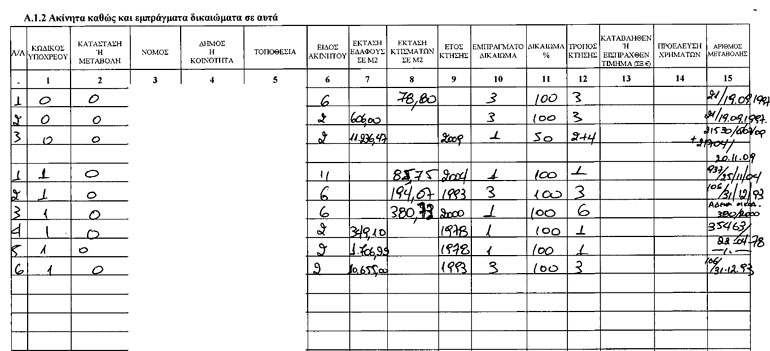 Α.1.2 Ακίνητα καθώς και εμπράγματα δικαιώματα σε αυτά
Α/Α ΚΩΔΙΚΟΣ ΥΠΟΧΡΕΟΥ ΚΑΤΑΣΤΑΣΗ Ή ΜΕΤΑΒΟΛΗ ΝΟΜΟΣ ΔΗΜΟΣ Η ΚΟΙΝΟΤΗΤΑ ΤΟΠΟΘΕΣΙΑ ΕΙΔΟΣ ΑΚΙΝΗΤΟΥ ΕΚΤΑΣΗ ΕΔΑΦΟΥΣ ΣΕ Μ2 ΕΚΤΑΣΗ ΚΤΙΣΜΑΤΩΝ ΣΕ Μ2 ΕΤΟΣ ΚΤΗΣΗΣ ΕΜΠΡΑΓΜΑΤΟ ΔΙΚΑΙΩΜΑ ΔΙΚΑΙΩΜΑ % ΤΡΟΠΟΣ ΚΤΗΣΗΣ ΚΑΤΑΒΛΗΘΕΝ Ή ΕΙΣΠΡΑΧΘΕΝ ΤΙΜΗΜΑ (ΣΕ €) ΠΡΟΕΛΕΥΣΗ ΧΡΗΜΑΤΩΝ ΑΡΙΘΜΟΣ ΜΕΤΑΒΟΛΗΣ
1 2 3 4 5 6 7 8 9 10 11 12 13 14 15
1 0 0 6 78,80 3 100 3 21/19.09.1997
2 0 0 2 606,00 3 100 3 21/19.09.1997
3 0 0 2 11.236,47 2009 1 50 2+4
20.11.09
1 1 0 2004 1 100 1 937/25/11/04
2 1 0 6 194,07 1993 3 100 3 106/31/12/93
3 1 0 6 380,73 2000 1 100 6
380/2000
4 1 0 2 349,10 1978 1 100 1 35463/
22.04.78
5 1 0 2 1978 1 100 1
6 1 0 2 10.655,00 1993 3 100 3 106/31.12.93